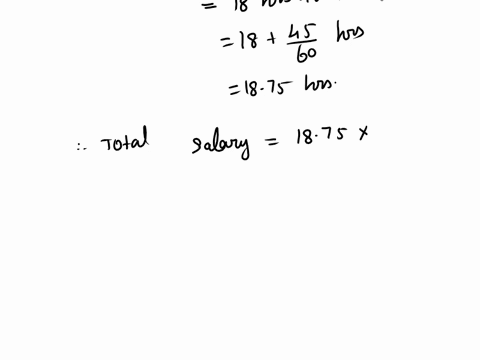 = 18
= 18 + 45/60 hrs
= 18.75 hrs.
∴ Total salary = 18.75 ×